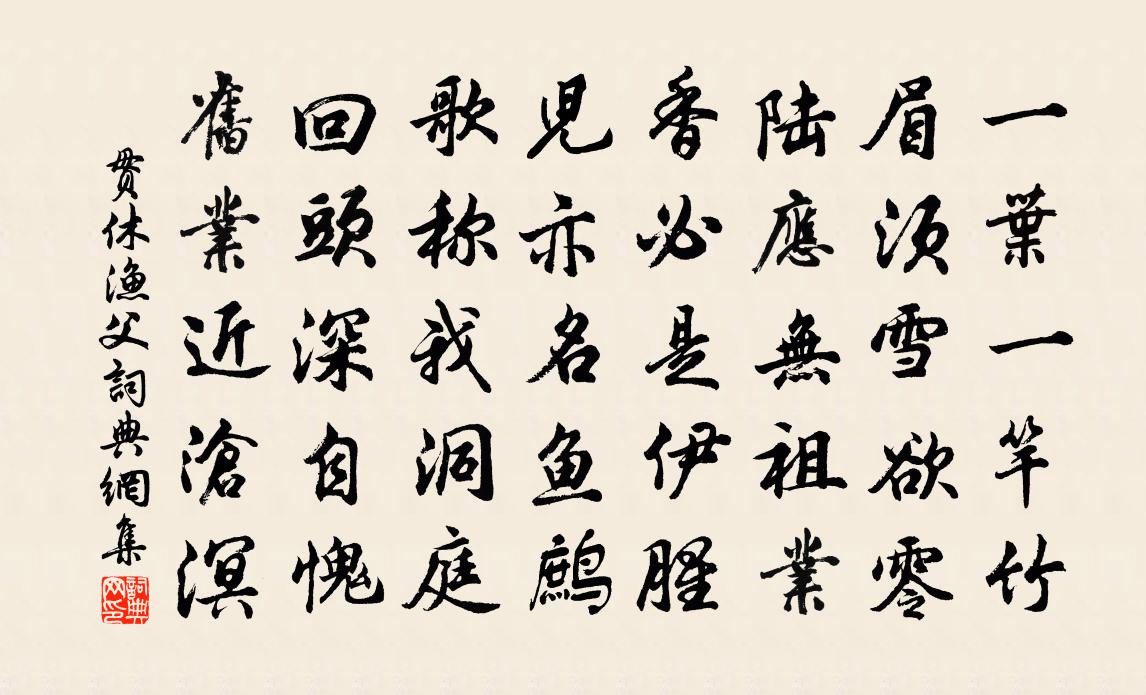 一葉一竿竹
眉須雪欲零
陸應無祖業
香必是伊腥
兒亦名魚鷉
歌称我洞庭
回頭深自愧
舊業近滄溟
貫休漁父詞典網集
詞典網印